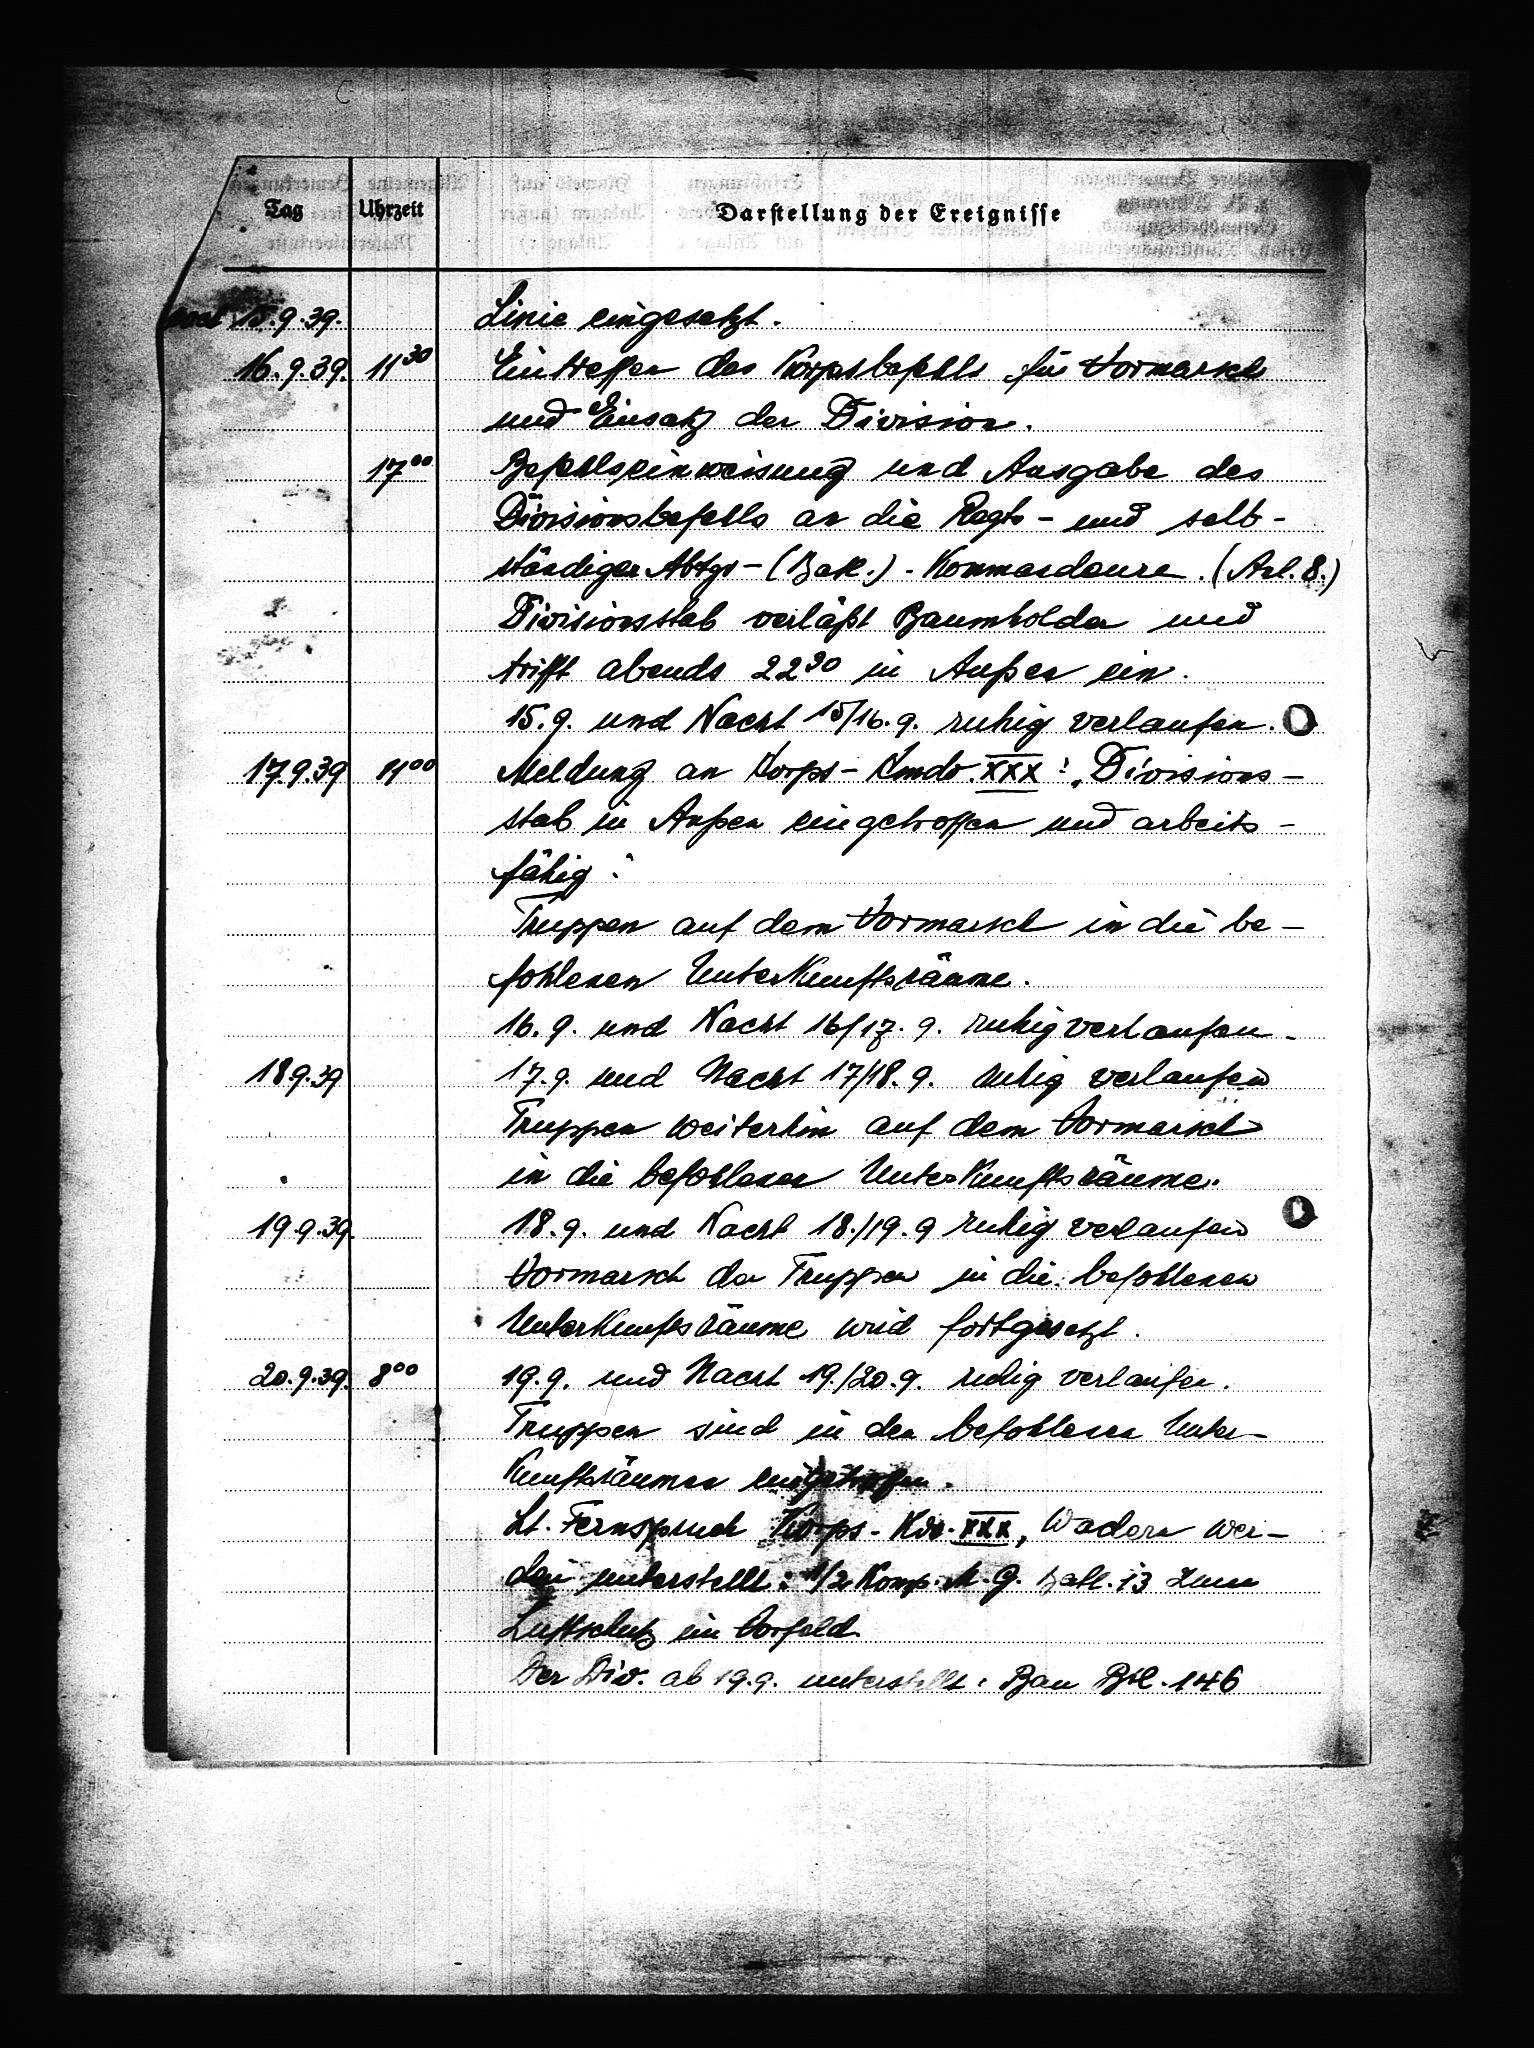 Tag Uhrzeit Darstellung der Ereignisse
noch 15.9.39. Linie eingesetzt.
16.9.39. 11³⁰ Eintreffen des Korpsbefehls für Vormarsch
und Einsatz der Division.
17⁰⁰ Befehlseinweisung und Ausgabe des
Divisionsbefehls an die Regts- und selb-
ständigen Abtgs-(Batl.)-Kommandeure. (Anl. 8.)
Divisionsstab verläßt Baumholder und
trifft abends 22³⁰ in Außen ein.
15.9. und Nacht 15/16.9. ruhig verlaufen.
17.9.39 11⁰⁰ Meldung an Korps-Kmdo. XXX: „Divisions-
stab in Außen eingetroffen und arbeits-
fähig."
Truppen auf dem Vormarsch in die be-
fohlenen Unterkunftsräume.
16.9. und Nacht 16/17.9. ruhig verlaufen.
18.9.39 17.9. und Nacht 17/18.9. ruhig verlaufen
Truppen weiterhin auf dem Vormarsch
in die befohlenen Unterkunftsräume.
19.9.39. 18.9. und Nacht 18./19.9 ruhig verlaufen
Vormarsch der Truppen in die befohlenen
Unterkunftsräume wird fortgesetzt.
20.9.39. 8⁰⁰ 19.9. und Nacht 19./20.9. ruhig verlaufen.
Truppen sind in den befohlenen Unter-
kunftsräumen eingetroffen.
Lt. Fernspruch Korps-Kdo. XXX, Wadern wer-
den unterstellt: 1/2 Komp. M.G. Batl. 13 zum
Luftschutz im Vorfeld
Der Div. ab 19.9. unterstellt: Bau Btl. 146